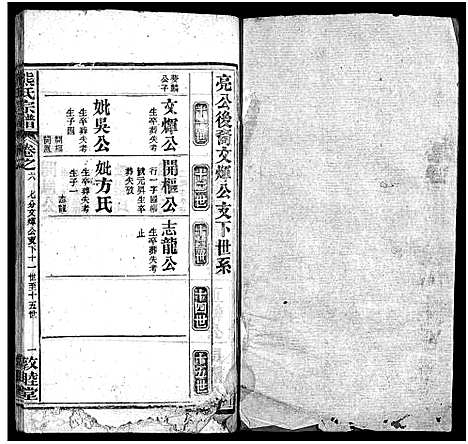 亮公後裔文煇公支下世系
十一世
十二世
十三世
十四世
十五世
文煇公
生卒葬失考
妣吳公
生卒葬失考
生子四
開樞公
行一字國樞
生卒葬失考
妣方氏
生卒葬失考
生子一
志龍
志龍公
生卒葬失考
止
熊氏宗譜
卷之六
七分文煇公支下十一世至十五世
一
敦睦堂